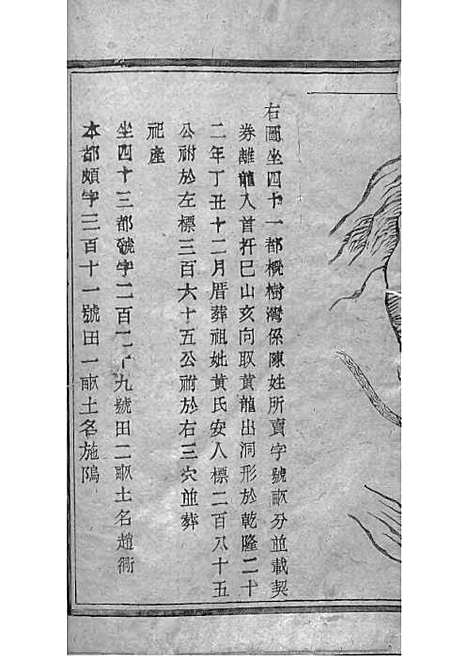 右圖坐四十一都櫬樹灣係陳姓所賣字號畝分並載契
券離龍入首扦巳山亥向取黃龍出洞形於乾隆二十
二年丁丑十二月厝葬祖妣黃氏安人標二百八十五
公祔於左標三百六十五公祔於右三穴並葬
祀產
坐四十三都號字二百二十九號田二畝土名趙衕
本都頗字三百十一號田一畝土名施隖